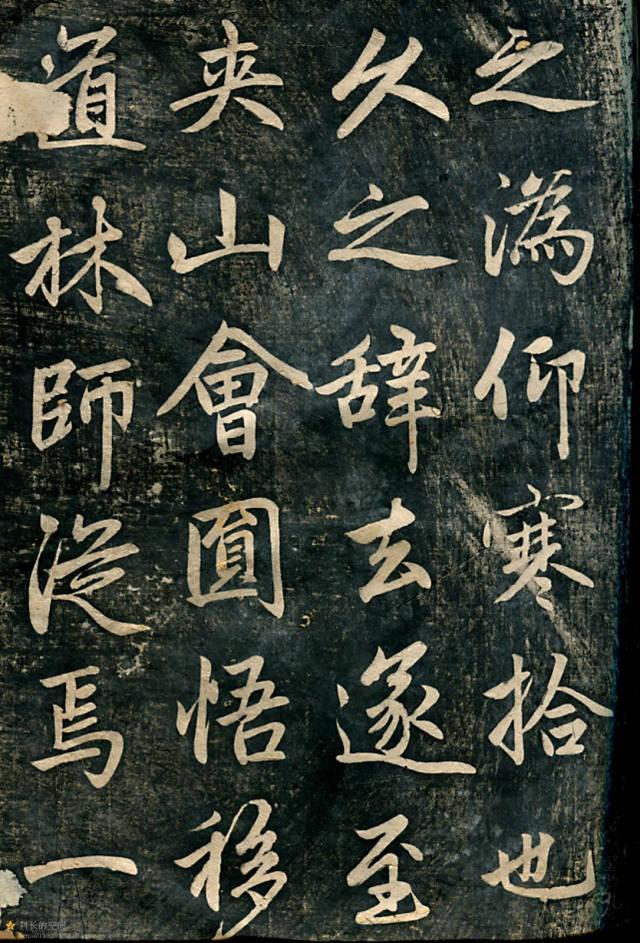 之溈仰寒拾也
久之辞去遂至
夾山會圓悟移
道林師從焉一